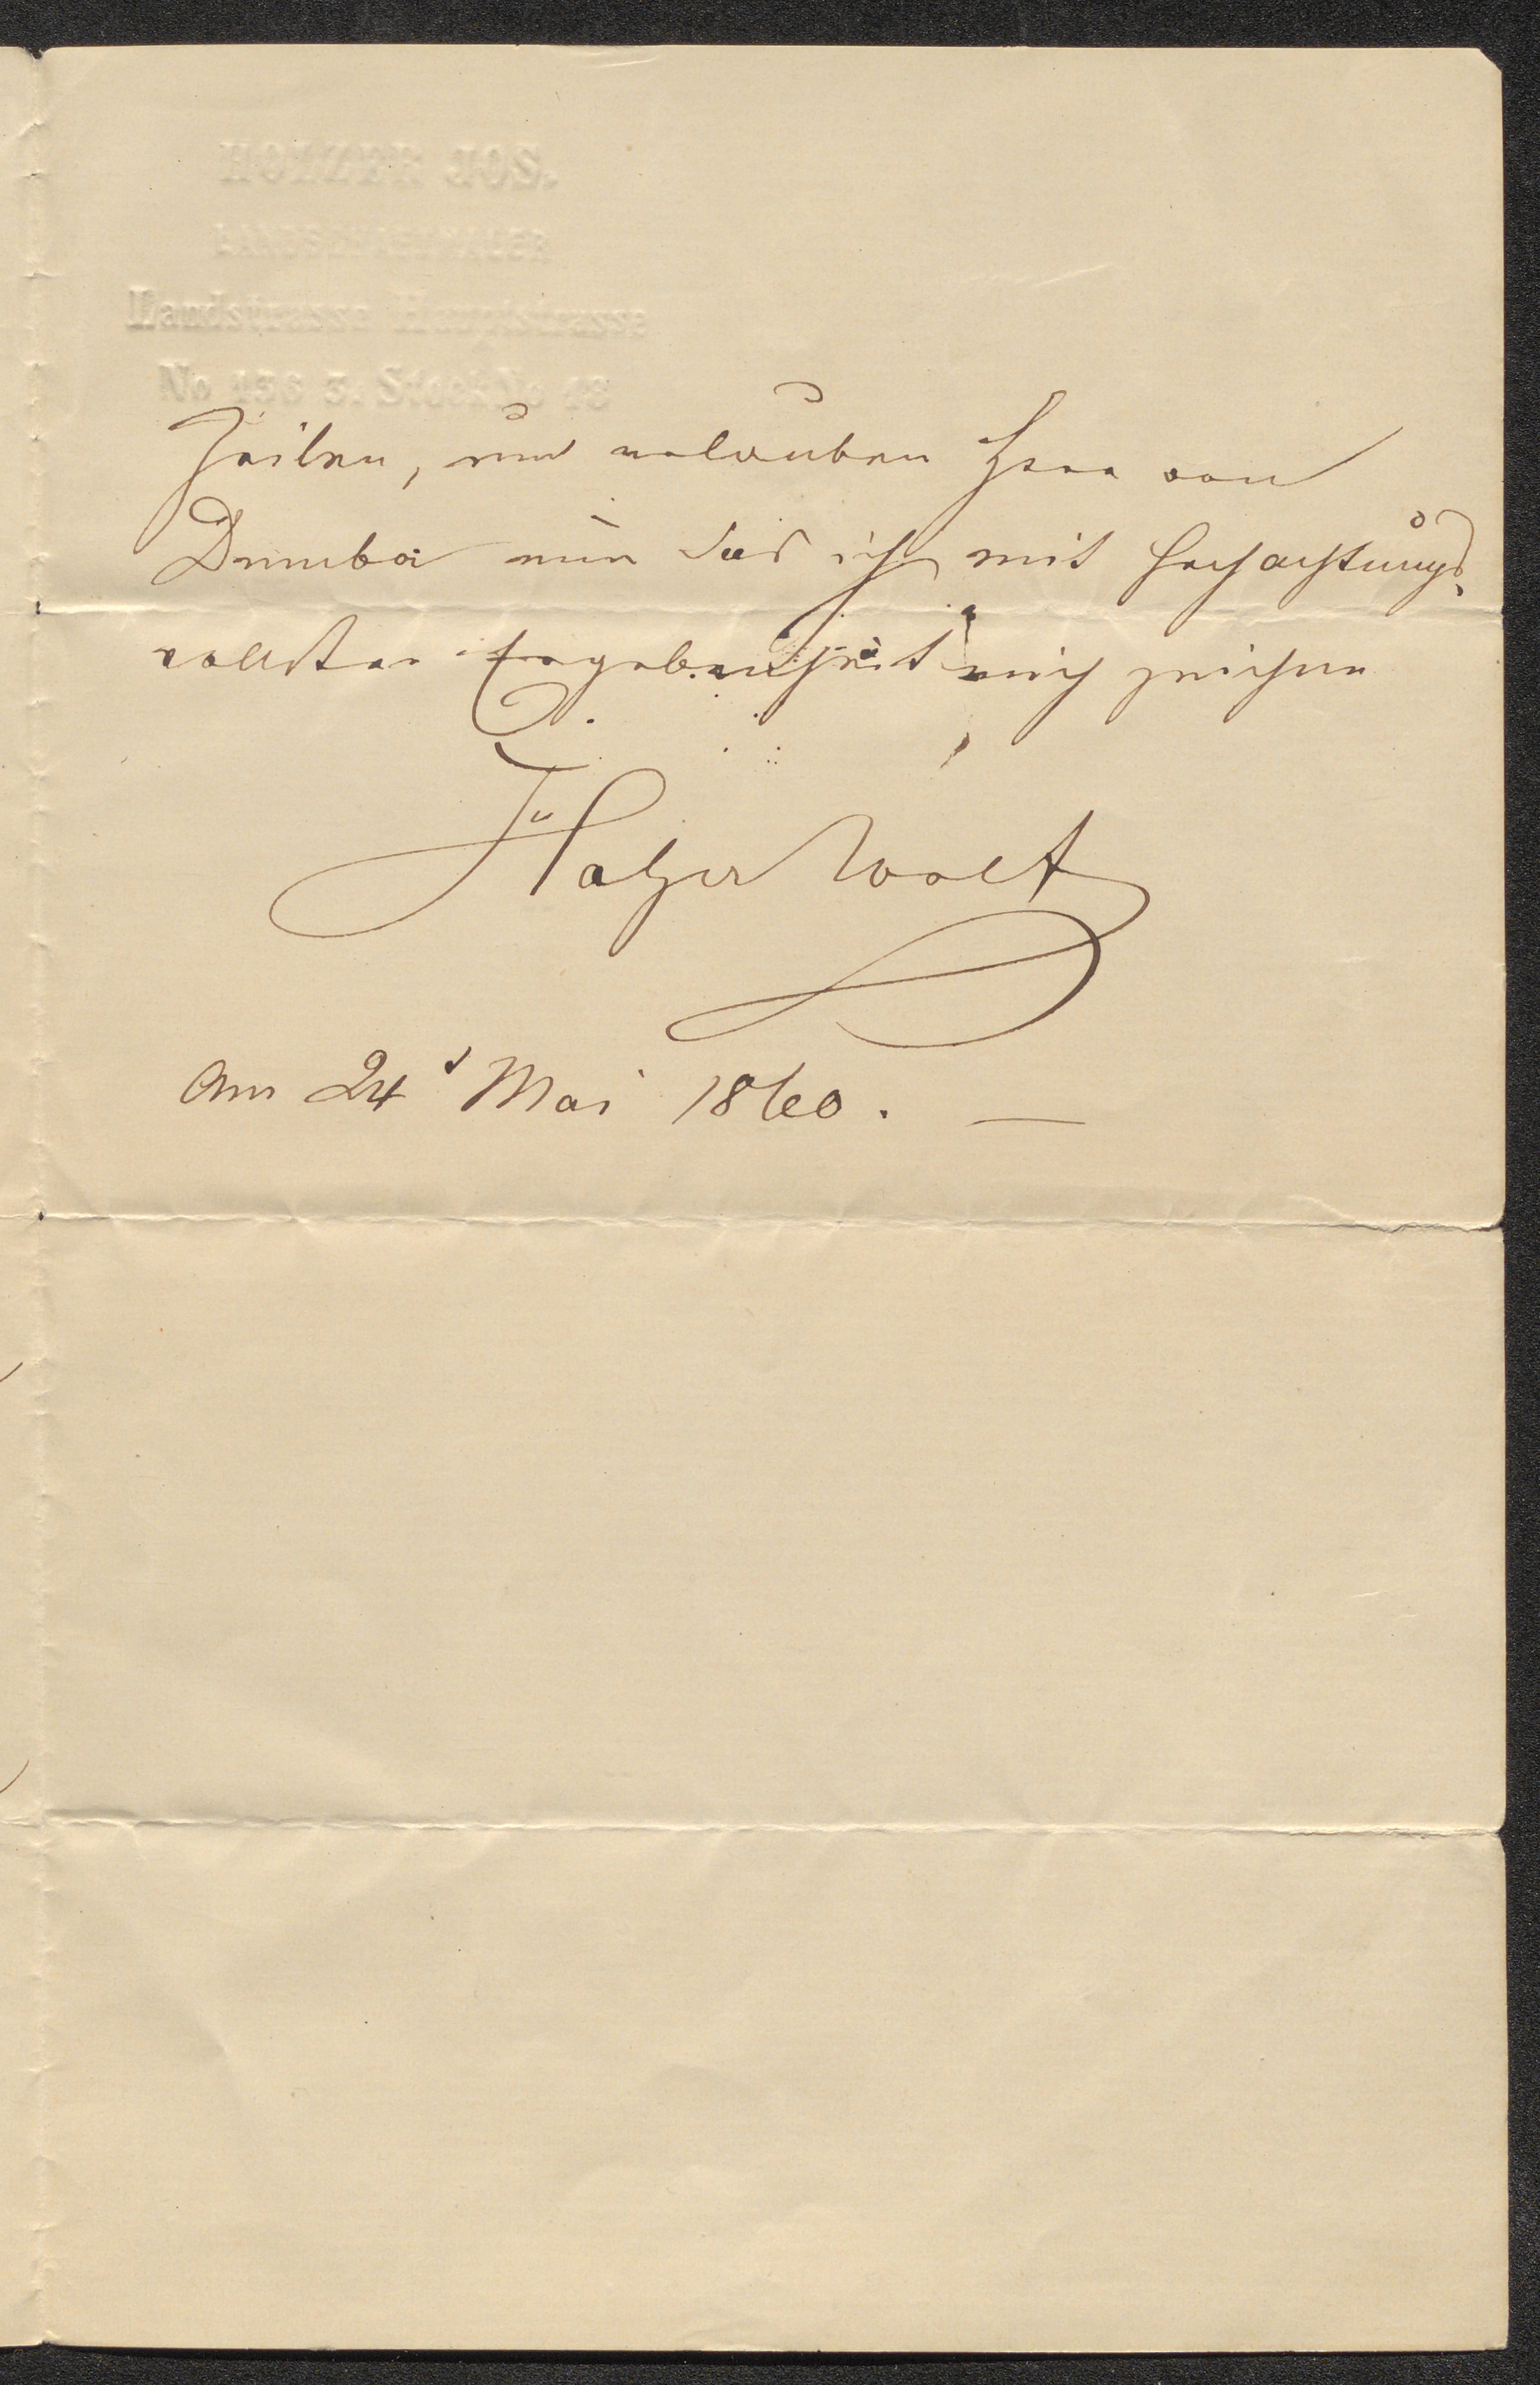 HOLZER JOS.
LANDSCHAFTMALER
Landstrasse Hauptstrasse
No 136 3. Stock No 18
Zeilen, und erlauben Herr von
Dumba nun das ich mit Hochachtungs-
vollster Ergebenheit mich zeichne
Holzer
Am 24t Mai 1860. —